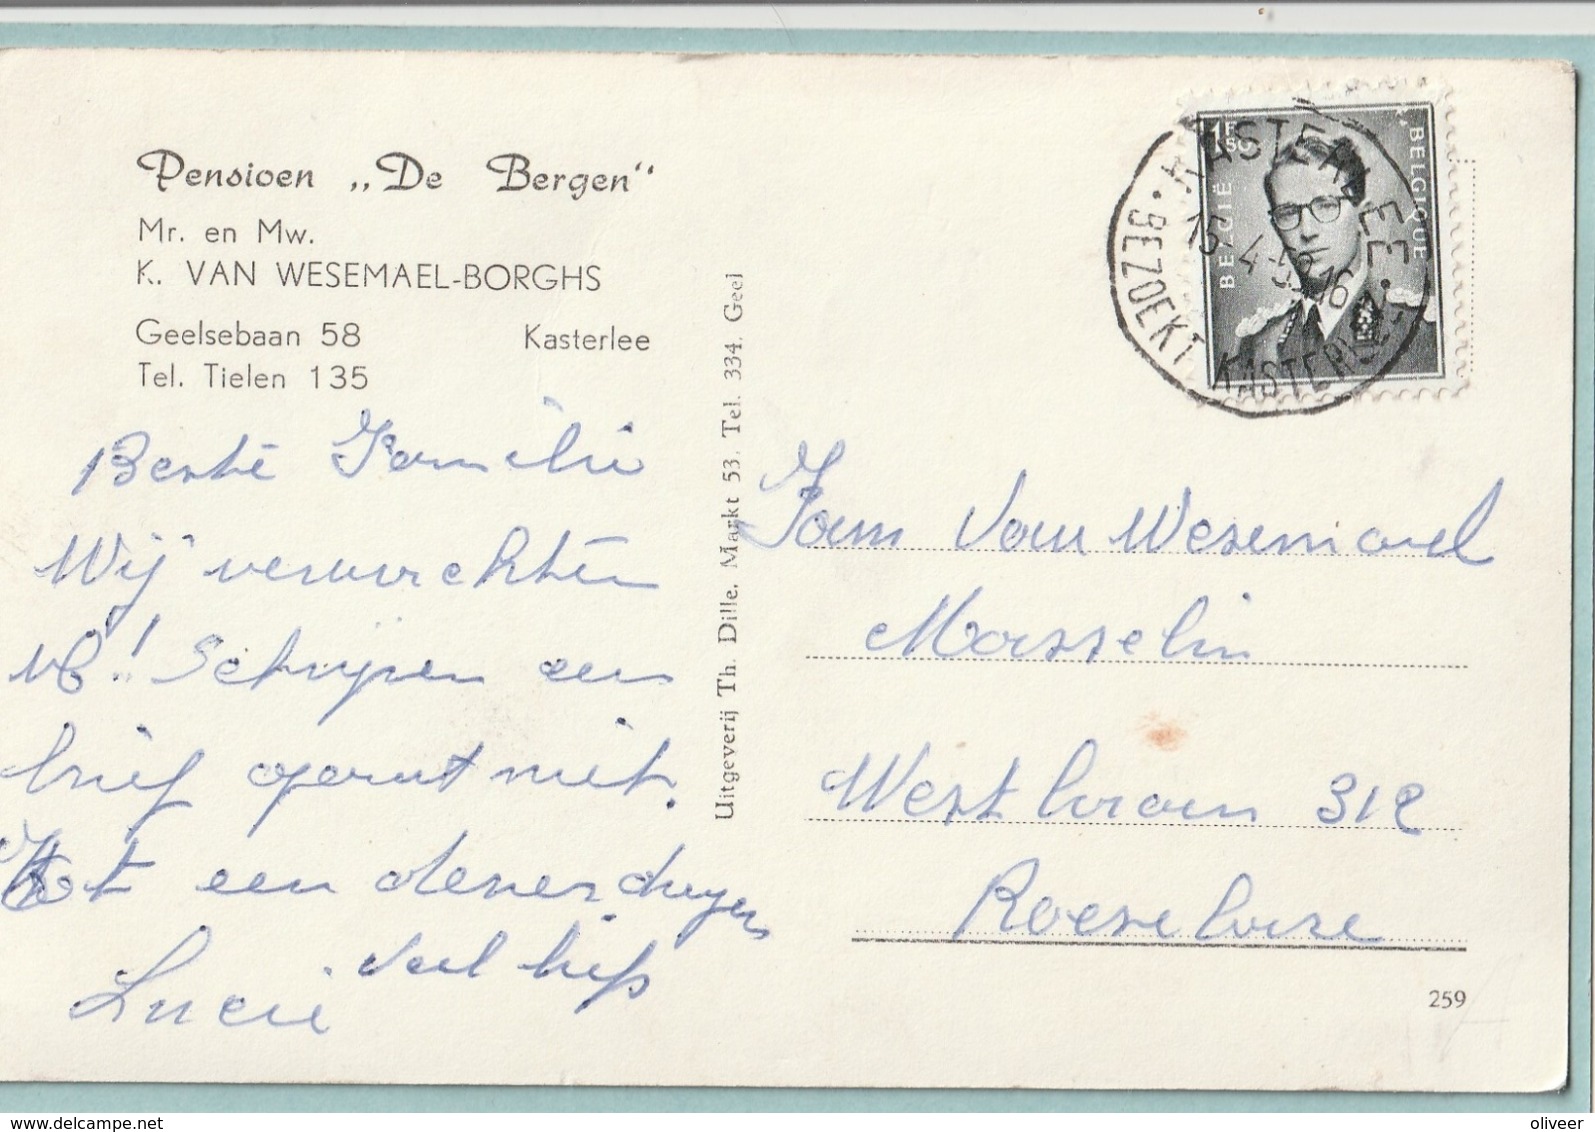 Pensioen „De Bergen"
Mr. en Mw.
K. VAN WESEMAEL-BORGHS
Geelsebaan 58 Kasterlee
Tel. Tielen 135
Beste Familie
Wij verwachten
U! Schrijven een
brief gaat niet.
Tot een dezer dagen
Veel liefs
Lucie
Uitgeverij Th. Dille, Markt 53, Tel. 334, Geel
1F 50
BELGIË
BELGIQUE
KASTERLEE
15-4-59.16
BEZOEKT KASTERLEE
Fam Van Wesemael
Masselin
Westlaan 312
Roeselare
259
www.delcampe.net
oliveer